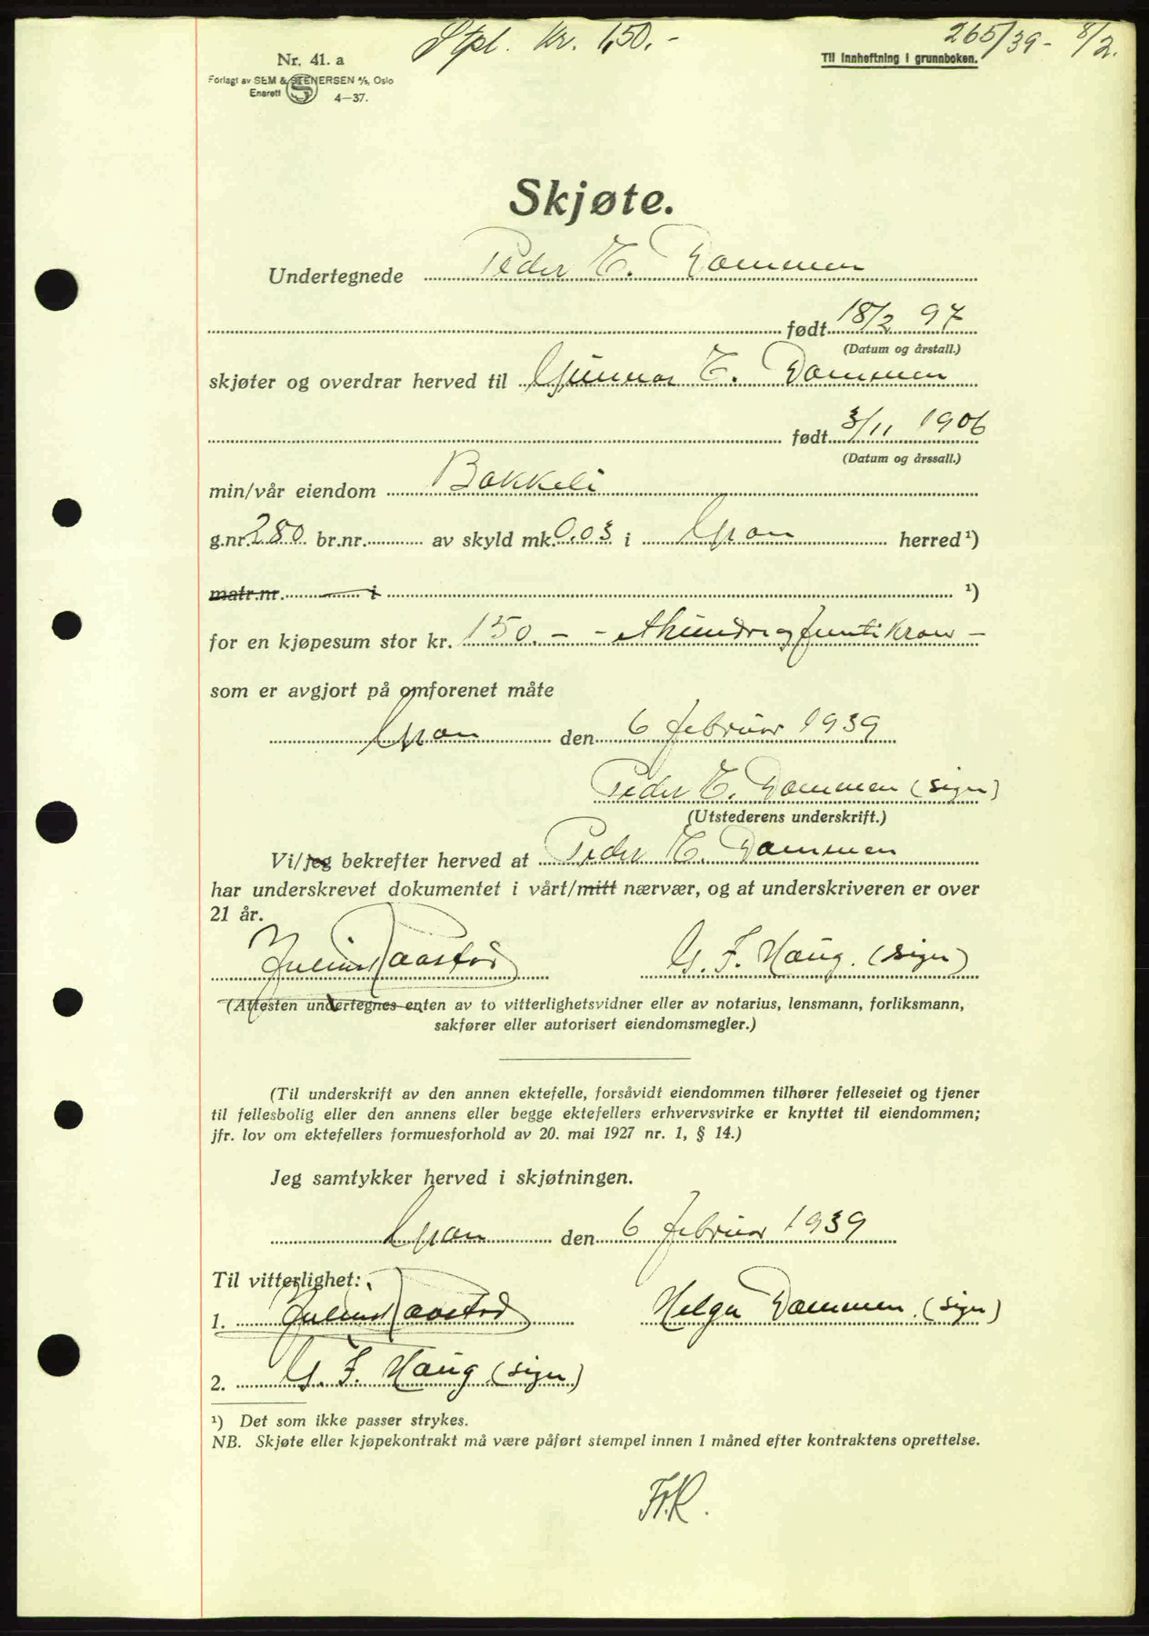 Stpl. Kr. 1,50.-
265/39 - 8/2.
Nr. 41. a
Til innheftning i grunnboken.
Forlagt av SEM & STENERSEN A/S, Oslo
Enerett
4—37.
Skjøte.
Undertegnede Peder T. Dammen
født 18/2 97
(Datum og årstall.)
skjøter og overdrar herved til Gunnar T. Dammen
født 3/11 1906
(Datum og årssall.)
min/vår eiendom Bakkeli
g.nr. 280 br.nr. av skyld mk. 0.03 i Gran herred ¹)
matr.nr. i ¹)
for en kjøpesum stor kr. 150.- - Etthundreogfemtikroner -
som er avgjort på omforenet måte
Gran den 6 februar 1939
Peder T. Dammen (sign)
(Utstederens underskrift.)
Vi/jeg bekrefter herved at Peder T. Dammen
har underskrevet dokumentet i vårt/mitt nærvær, og at underskriveren er over
21 år.
Julius Raastad G. F. Haug. (sign)
(Attesten undertegnes enten av to vitterlighetsvidner eller av notarius, lensmann, forliksmann,
sakfører eller autorisert eiendomsmegler.)
(Til underskrift av den annen ektefelle, forsåvidt eiendommen tilhører felleseiet og tjener
til fellesbolig eller den annens eller begge ektefellers erhvervsvirke er knyttet til eiendommen;
jfr. lov om ektefellers formuesforhold av 20. mai 1927 nr. 1, § 14.)
Jeg samtykker herved i skjøtningen.
Gran den 6 februar 1939
Til vitterlighet:
1. Julius Raastad Helga Dammen. (sign)
2. G. F. Haug (sign)
¹) Det som ikke passer strykes.
NB. Skjøte eller kjøpekontrakt må være påført stempel innen 1 måned efter kontraktens oprettelse.
Fr.R.